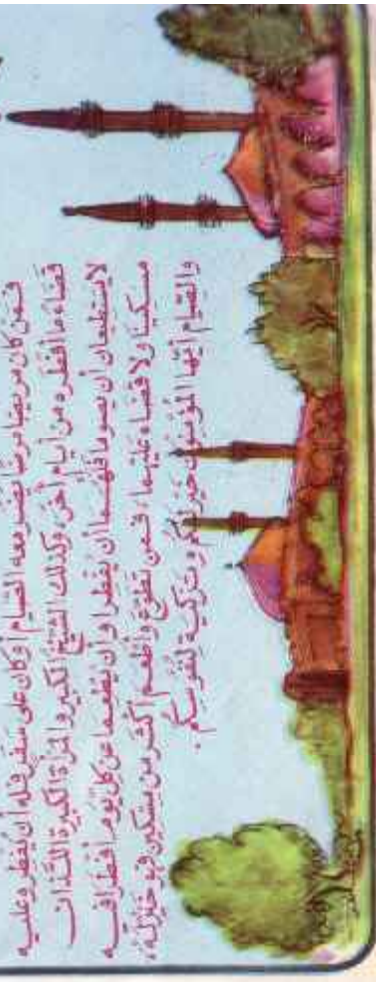 فمن كان مريضا مرضا يضر معه الصيام أو كان على سفر فله أن يفطر وعليه
قضاء ما أفطره من أيام أخر، وكذلك الشيخ الكبير والمرأة الكبيرة اللذان
لا يستطيعان أن يصوما فلهما أن يفطرا وأن يطعما عن كل يوم أفطرا فيه
مسكينا ولا قضاء عليهما، فمن تطوع وأطعم أكثر من مسكين فهو خير له،
والصيام أيها المؤمنون خير لكم وتزكية لنفوسكم.